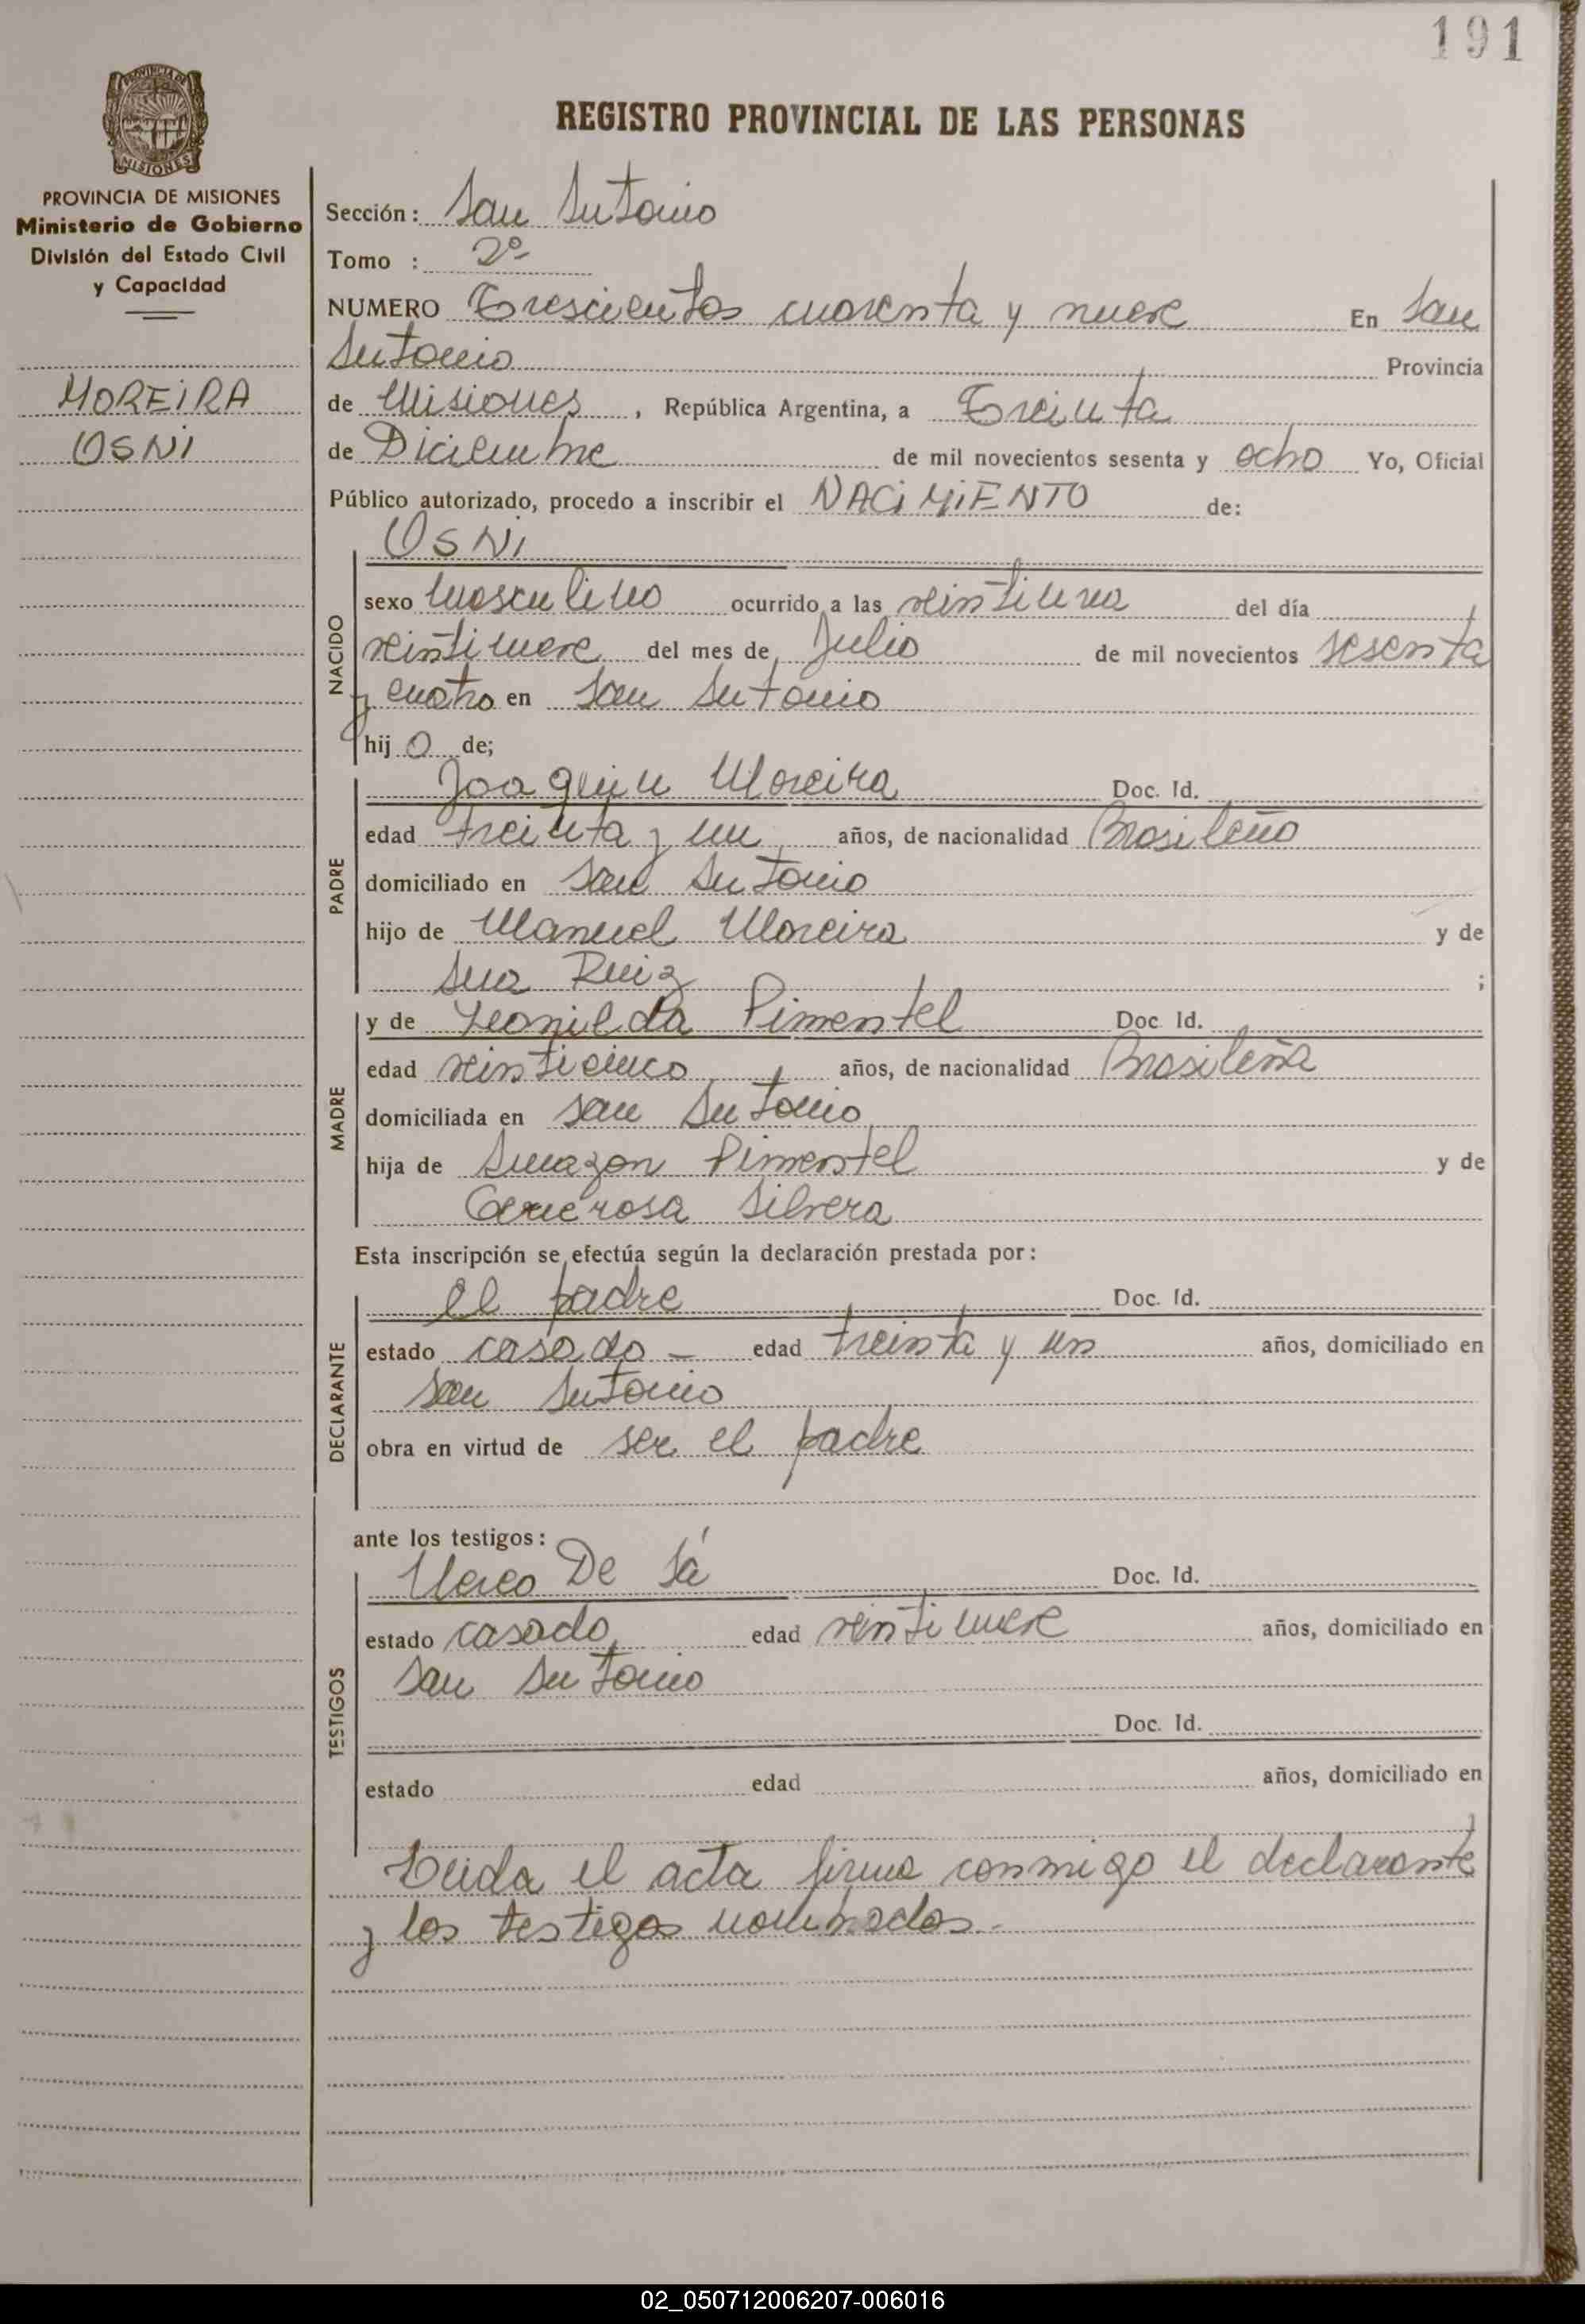 191
PROVINCIA DE MISIONES
MISIONES
PROVINCIA DE MISIONES
Ministerio de Gobierno
División del Estado Civil
y Capacidad
MOREIRA
OSNI
REGISTRO PROVINCIAL DE LAS PERSONAS
Sección: San Antonio
Tomo : 2º
NUMERO Trescientos cuarenta y nueve En San
Antonio Provincia
de Misiones, República Argentina, a Treinta
de Diciembre de mil novecientos sesenta y ocho Yo, Oficial
Público autorizado, procedo a inscribir el NACIMIENTO de:
OSNI
NACIDO
sexo masculino ocurrido a las veintiuna del día
veintinueve del mes de Julio de mil novecientos sesenta
y cuatro en San Antonio
hij o de;
PADRE
Joaquin Moreira Doc. Id.
edad treinta y un años, de nacionalidad Brasileño
domiciliado en San Antonio
hijo de Manuel Moreira y de
Ana Ruiz ;
MADRE
y de Leonilda Pimentel Doc. Id.
edad veinticinco años, de nacionalidad Brasileña
domiciliada en San Antonio
hija de Amazon Pimentel y de
Generosa Silvera
Esta inscripción se efectúa según la declaración prestada por:
DECLARANTE
el padre Doc. Id.
estado casado - edad treinta y un años, domiciliado en
San Antonio
obra en virtud de ser el padre
ante los testigos:
TESTIGOS
De Sá Doc. Id.
estado casado edad veintinueve años, domiciliado en
San Antonio
Doc. Id.
estado edad años, domiciliado en
Leida el acta firma conmigo el declarante
y los testigos nombrados.-
02_050712006207-006016